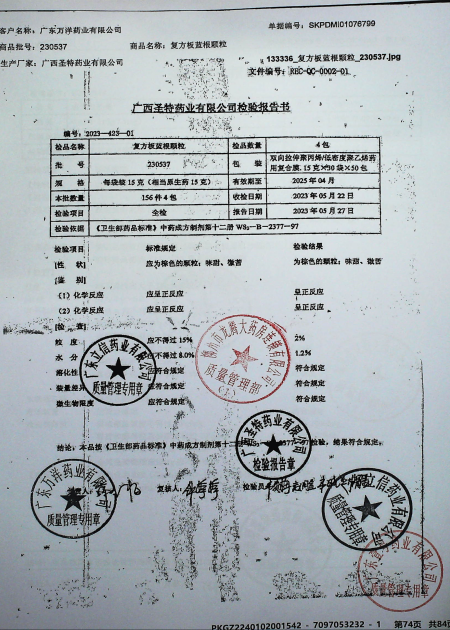 客户名称：广东万洋药业有限公司
单据编号：SKPDMI01076799
商品批号：230537
商品名称：复方板蓝根颗粒
生产厂家：广西圣特药业有限公司
133336_复方板蓝根颗粒_230537.jpg
文件编号：REC-QC-0002-01
广西圣特药业有限公司检验报告书
编号：2023-423-01
检品名称 复方板蓝根颗粒 检品数量 4包
批 号 230537 包 装 双向拉伸聚丙烯/低密度聚乙烯药用复合膜.15克×30袋×50包
规 格 每袋装15克（相当原生药15克） 有效期至 2025年04月
本批数量 156件4包 收检日期 2023年05月22日
检验项目 全检 报告日期 2023年05月27日
检验依据 《卫生部药品标准》中药成方制剂第十二册 WS₃-B-2377-97
检验项目 标准规定 检验结果
[性 状] 应为棕色的颗粒；味甜、微苦 为棕色的颗粒；味甜、微苦
[鉴 别]
（1）化学反应 应呈正反应 呈正反应
（2）化学反应 应呈正反应 呈正反应
[检 查]
粒 度 应不得过15% 2%
水 分 应不得过8.0% 1.2%
溶化性 应符合规定 符合规定
装量差异 应符合规定 符合规定
微生物限度 应符合规定 符合规定
结论：本品按《卫生部药品标准》中药成方制剂第十二册 WS₃-B-2377-97检验，结果符合规定。
复核人：
检验员
广东立信药业有限公司
质量管理专用章
质量管理部
（1）
广西圣特药业有限公司
检验报告章
广东万洋药业有限公司
质量管理专用章
PKGZ2240102001542 - 7097053232 - 1 第74页 共84